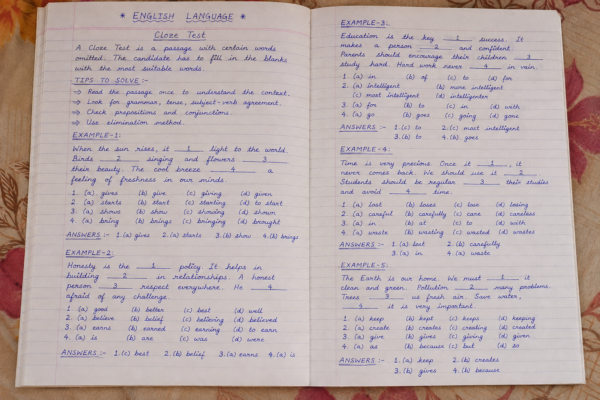 * ENGLISH LANGUAGE *
Cloze Test
A Cloze Test is a passage with certain words
omitted. The candidate has to fill in the blanks
with the most suitable words.
TIPS TO SOLVE :-
⇒ Read the passage once to understand the context.
⇒ Look for grammar, tense, subject-verb agreement.
⇒ Check prepositions and conjunctions.
⇒ Use elimination method.
EXAMPLE-1:
When the sun rises, it __1__ light to the world.
Birds __2__ singing and flowers __3__
their beauty. The cool breeze __4__ a
feeling of freshness in our minds.
1. (a) gives (b) give (c) giving (d) given
2. (a) starts (b) start (c) starting (d) to start
3. (a) shows (b) show (c) showing (d) shown
4. (a) bring (b) brings (c) bringing (d) brought
ANSWERS :- 1. (a) gives 2. (a) starts 3. (b) show 4. (b) brings
EXAMPLE-2:
Honesty is the __1__ policy. It helps in
building __2__ in relationships. A honest
person __3__ respect everywhere. He __4__
afraid of any challenge.
1. (a) good (b) better (c) best (d) well
2. (a) believe (b) belief (c) believing (d) believed
3. (a) earns (b) earned (c) earning (d) to earn
4. (a) is (b) are (c) was (d) were
ANSWERS :- 1. (c) best 2. (b) belief 3. (a) earns 4. (a) is
EXAMPLE-3:
Education is the key __1__ success. It
makes a person __2__ and confident.
Parents should encourage their children __3__
study hard. Hard work never __4__ in vain.
1. (a) in (b) of (c) to (d) for
2. (a) intelligent (b) more intelligent
(c) most intelligent (d) intelligenter
3. (a) for (b) to (c) in (d) with
4. (a) go (b) goes (c) going (d) gone
ANSWERS :- 1. (c) to 2. (c) most intelligent
3. (b) to 4. (b) goes
EXAMPLE-4:
Time is very precious. Once it __1__, it
never comes back. We should use it __2__.
Students should be regular __3__ their studies
and avoid __4__ time.
1. (a) lost (b) loses (c) lose (d) losing
2. (a) careful (b) carefully (c) care (d) careless
3. (a) in (b) at (c) to (d) with
4. (a) waste (b) wasting (c) wasted (d) wastes
ANSWERS :- 1. (a) lost 2. (b) carefully
3. (a) in 4. (a) waste
EXAMPLE-5:
The Earth is our home. We must __1__ it
clean and green. Pollution __2__ many problems.
Trees __3__ us fresh air. Save water,
__4__ it is very important
1. (a) keep (b) kept (c) keeps (d) keeping
2. (a) create (b) creates (c) creating (d) created
3. (a) give (b) gives (c) giving (d) given
4. (a) as (b) because (c) but (d) so
ANSWERS :- 1. (a) keep 2. (b) creates
3. (b) gives 4. (b) because